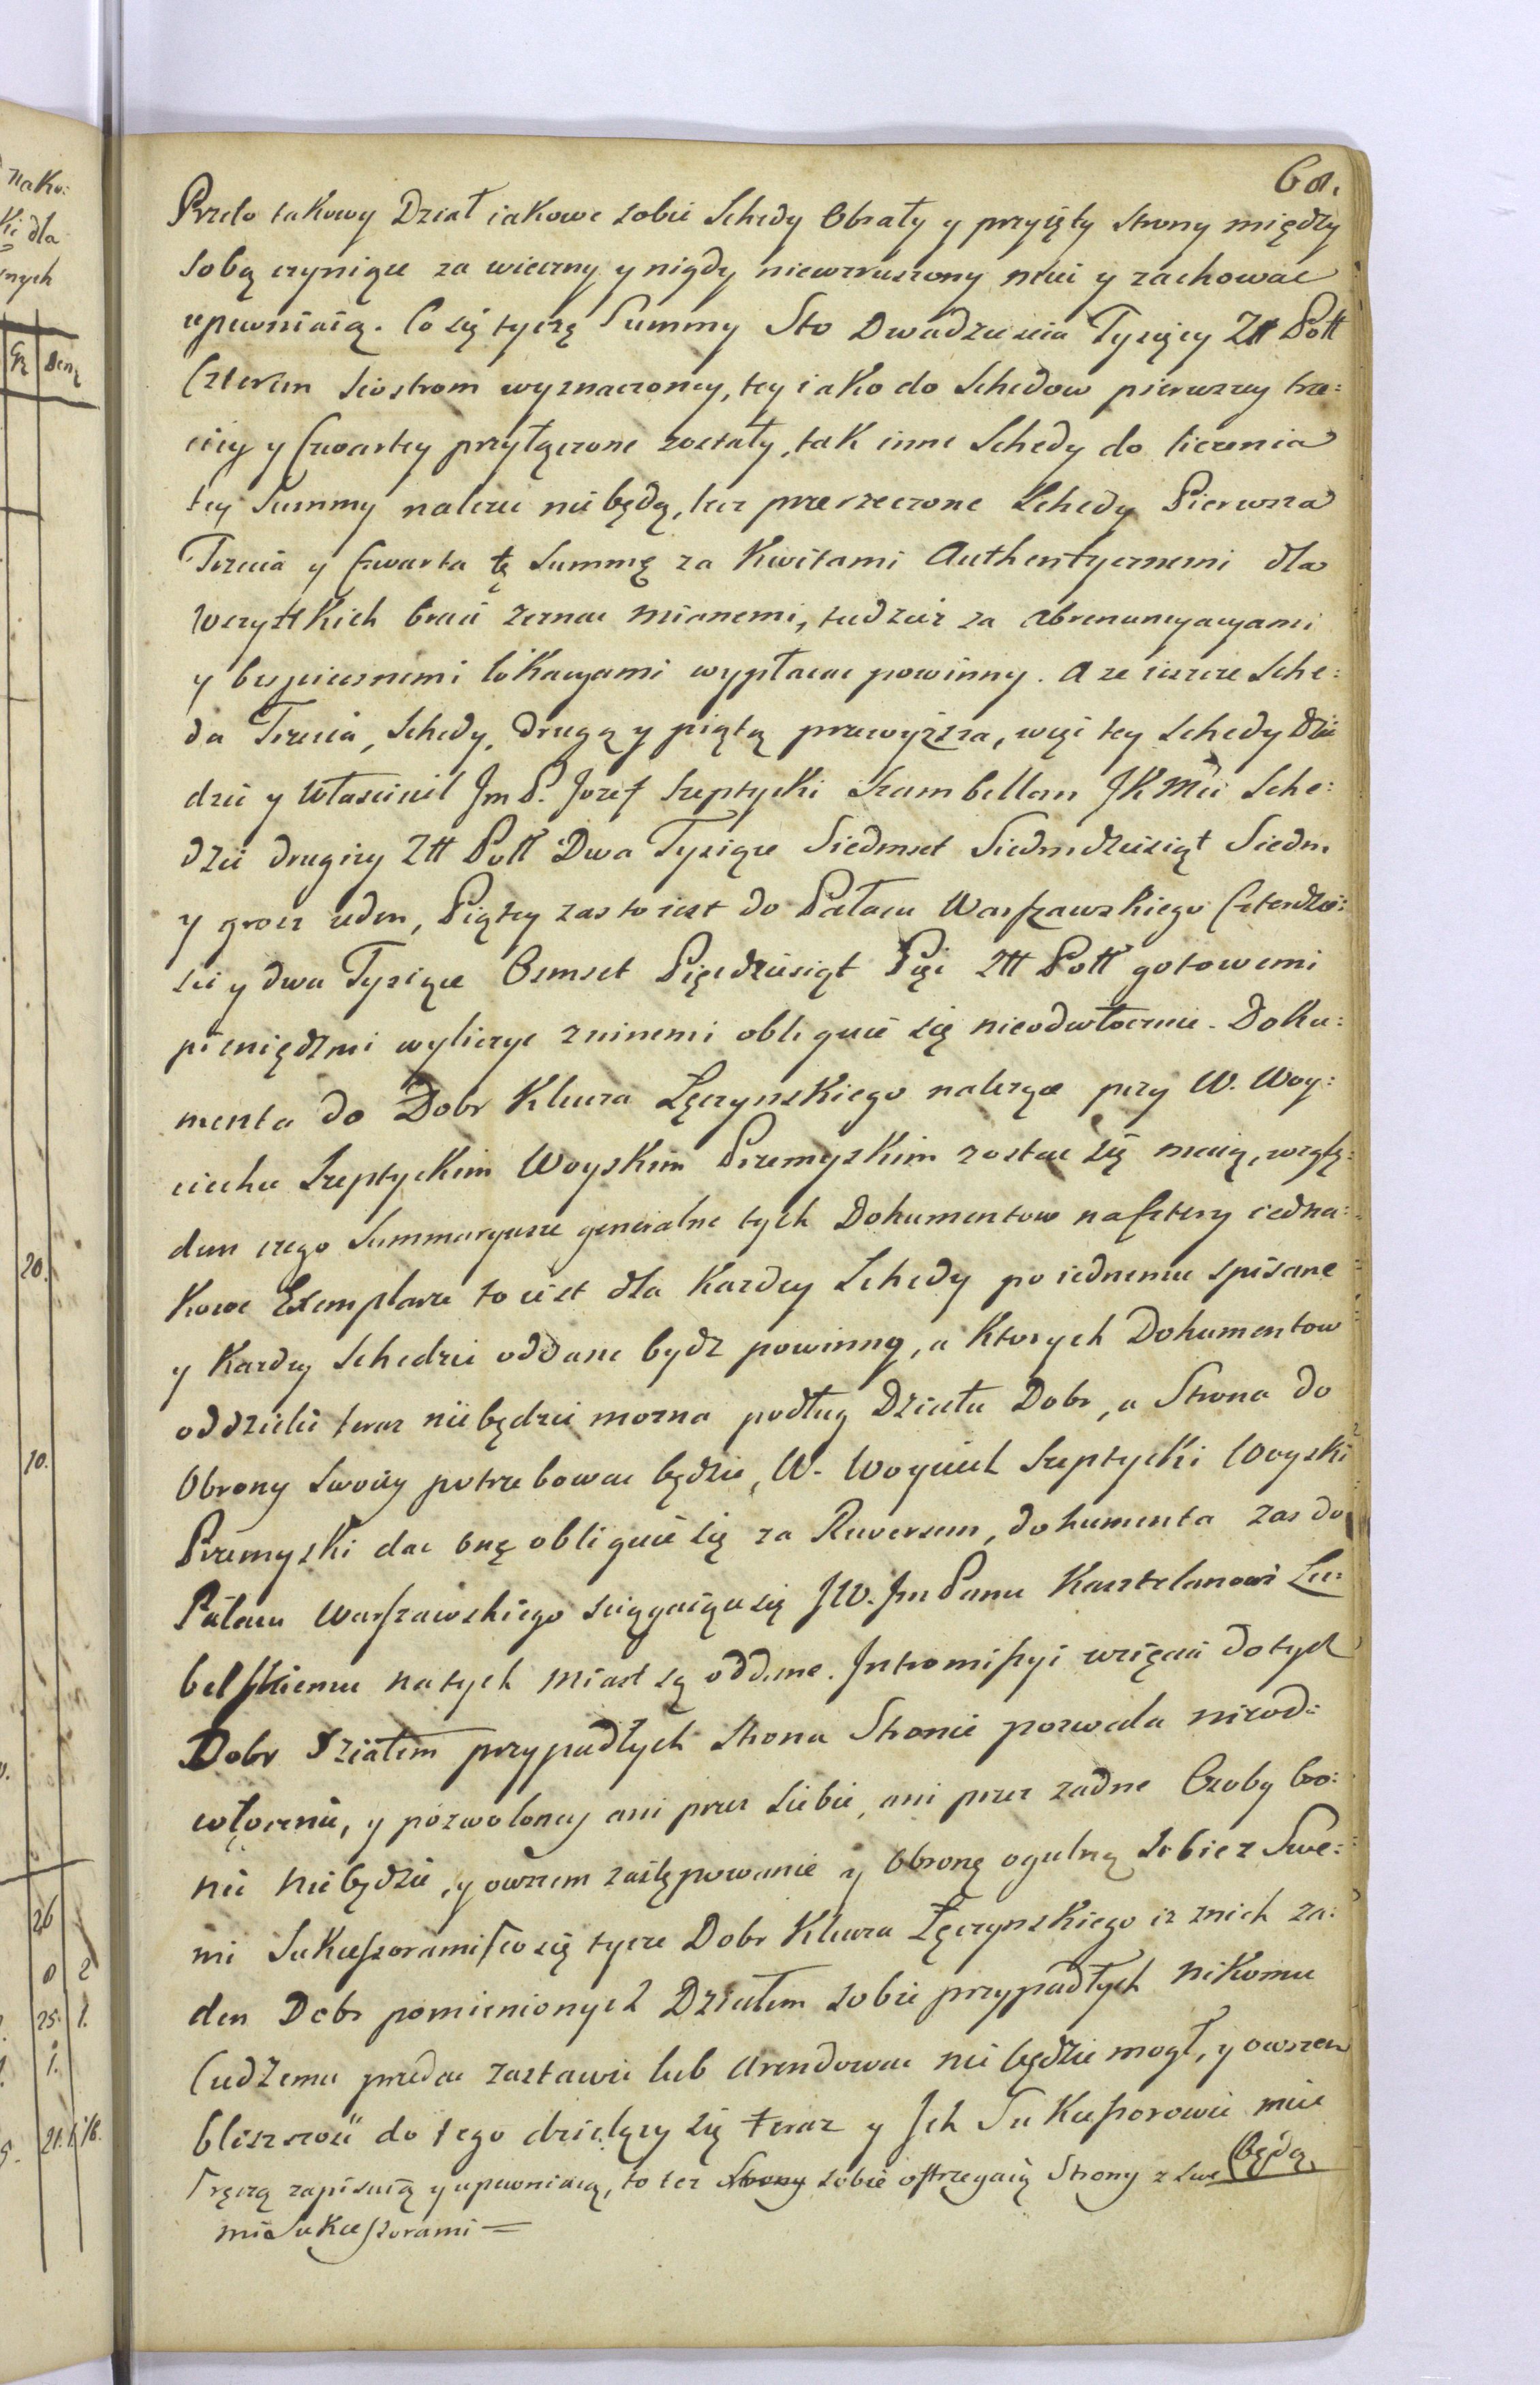 nako:
ki dla
nych
Gr Den
20.
10.
26
0 2
25. 1.
1.
21. 1/18.
68.
Przeto takowy Dział iakowe sobie Schedy Obrały y przyięły Strony między
sobą czyniące za wieczny y nigdy niewzruszony miec y zachowac
upewniaią. Co się tyczę Summy Sto Dwadziescia Tysięcy Złł Poll
Czterem Siostrom wyznaczoney, tey iako do Schedow pierwszey trze:
ciey y Czwartey przyłączone zostały, tak inne Schedy do liczenia
tey Summy nalezec nie będą, lecz przerzeczone Schedy Pierwsza
Trzecia y Czwarta tę Summę za Kwitami Authentycznemi dla
Wszystkich braci zeznac mianemi, tudziesz za abrenuncyacyami
y bespiecznemi lokacyami wypłacac powinny. A ze ieszcze Sche:
da Trzecia, Schedy, drugą y piątą przewyższa, więc tey Schedy Dzie
dzic y Własciciel Jm P. Jozef Szeptycki Szambellan JKMci Sche:
dzie drugiey Złł Poll Dwa Tysiące Siedmset Siedmdziesiąt Siedm
y grosz ieden, Piątey zas to iest do Pałacu Warszawskiego Czterdzie:
sci y dwa Tysiące Osmset Pięcdziesiąt Pięc Złł Poll gotowemi
pieniędzmi wyliczyc z niemi obliguie się nieodwłocznie. Doku:
menta do Dobr Klucza Łęczynskiego nalezące przy W. Woy:
ciechu Szeptyckim Woyskim Przemyskim zostac się maią, wzglę:
dem czego Summaryusze generalne tych Dokumentow na Cztery iedna:
kowe Exemplarze to iest dla Kazdey Schedy po iednemu spisane
y Kazdey Schedzie oddane bydz powinny, a Ktorych Dokumentow
oddzielic teraz nie będzie mozna podług Działu Dobr, a Strona do
Obrony Swoiey potrzebowac będzie, W. Woyciech Szeptycki Woyski
Przemyski dac onę obliguie się za Rewersem, dokumenta zas do
Pałacu Warszawskiego sciągaiące się JW. Jm Panu Kasztelanowi Lu:
belskiemu natych miast są oddane. Intromissyi wzięcia do tych
Dobr Działem przypadłych Strona Stronie pozwala nieod:
włocznie, y pozwoloney ani przez Siebie, ani przez zadne Osoby bro:
nic nie będzie, y owszem zastępowanie y Obronę ogulną Sobie z Swe:
mi Sukcessorami Co się tycze Dobr Klucza Łęczynskiego iz z nich za:
den Dobr pomienionych Działem sobie przypadłych nikomu
Cudzemu przedac zastawic lub Arendowac nie będzie mogł, y owszem
bliszszosc do tego dzielący się teraz y Ich Sukcessorowie miec
będą,
Γręczą zapisuią y upewniaią, to tez Strony sobie ostrzegaią Strony z swe
mi Sukcessorami =